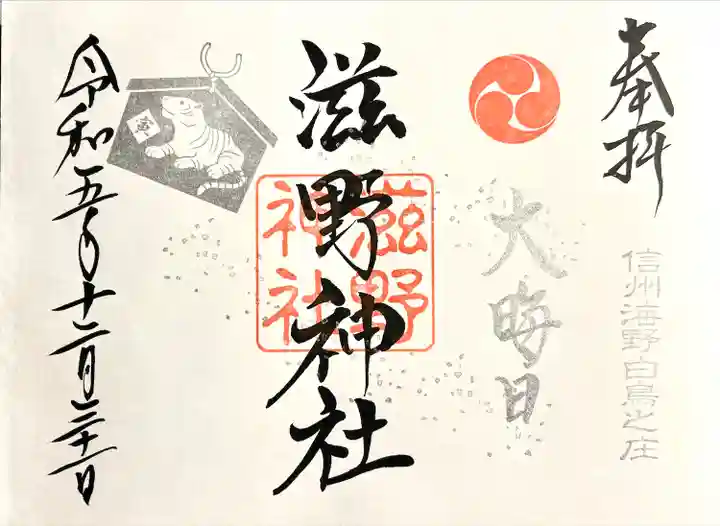 奉拝
信州海野白鳥之庄
大晦日
滋野神社
滋野
神社
寅
令和五年十二月三十一日